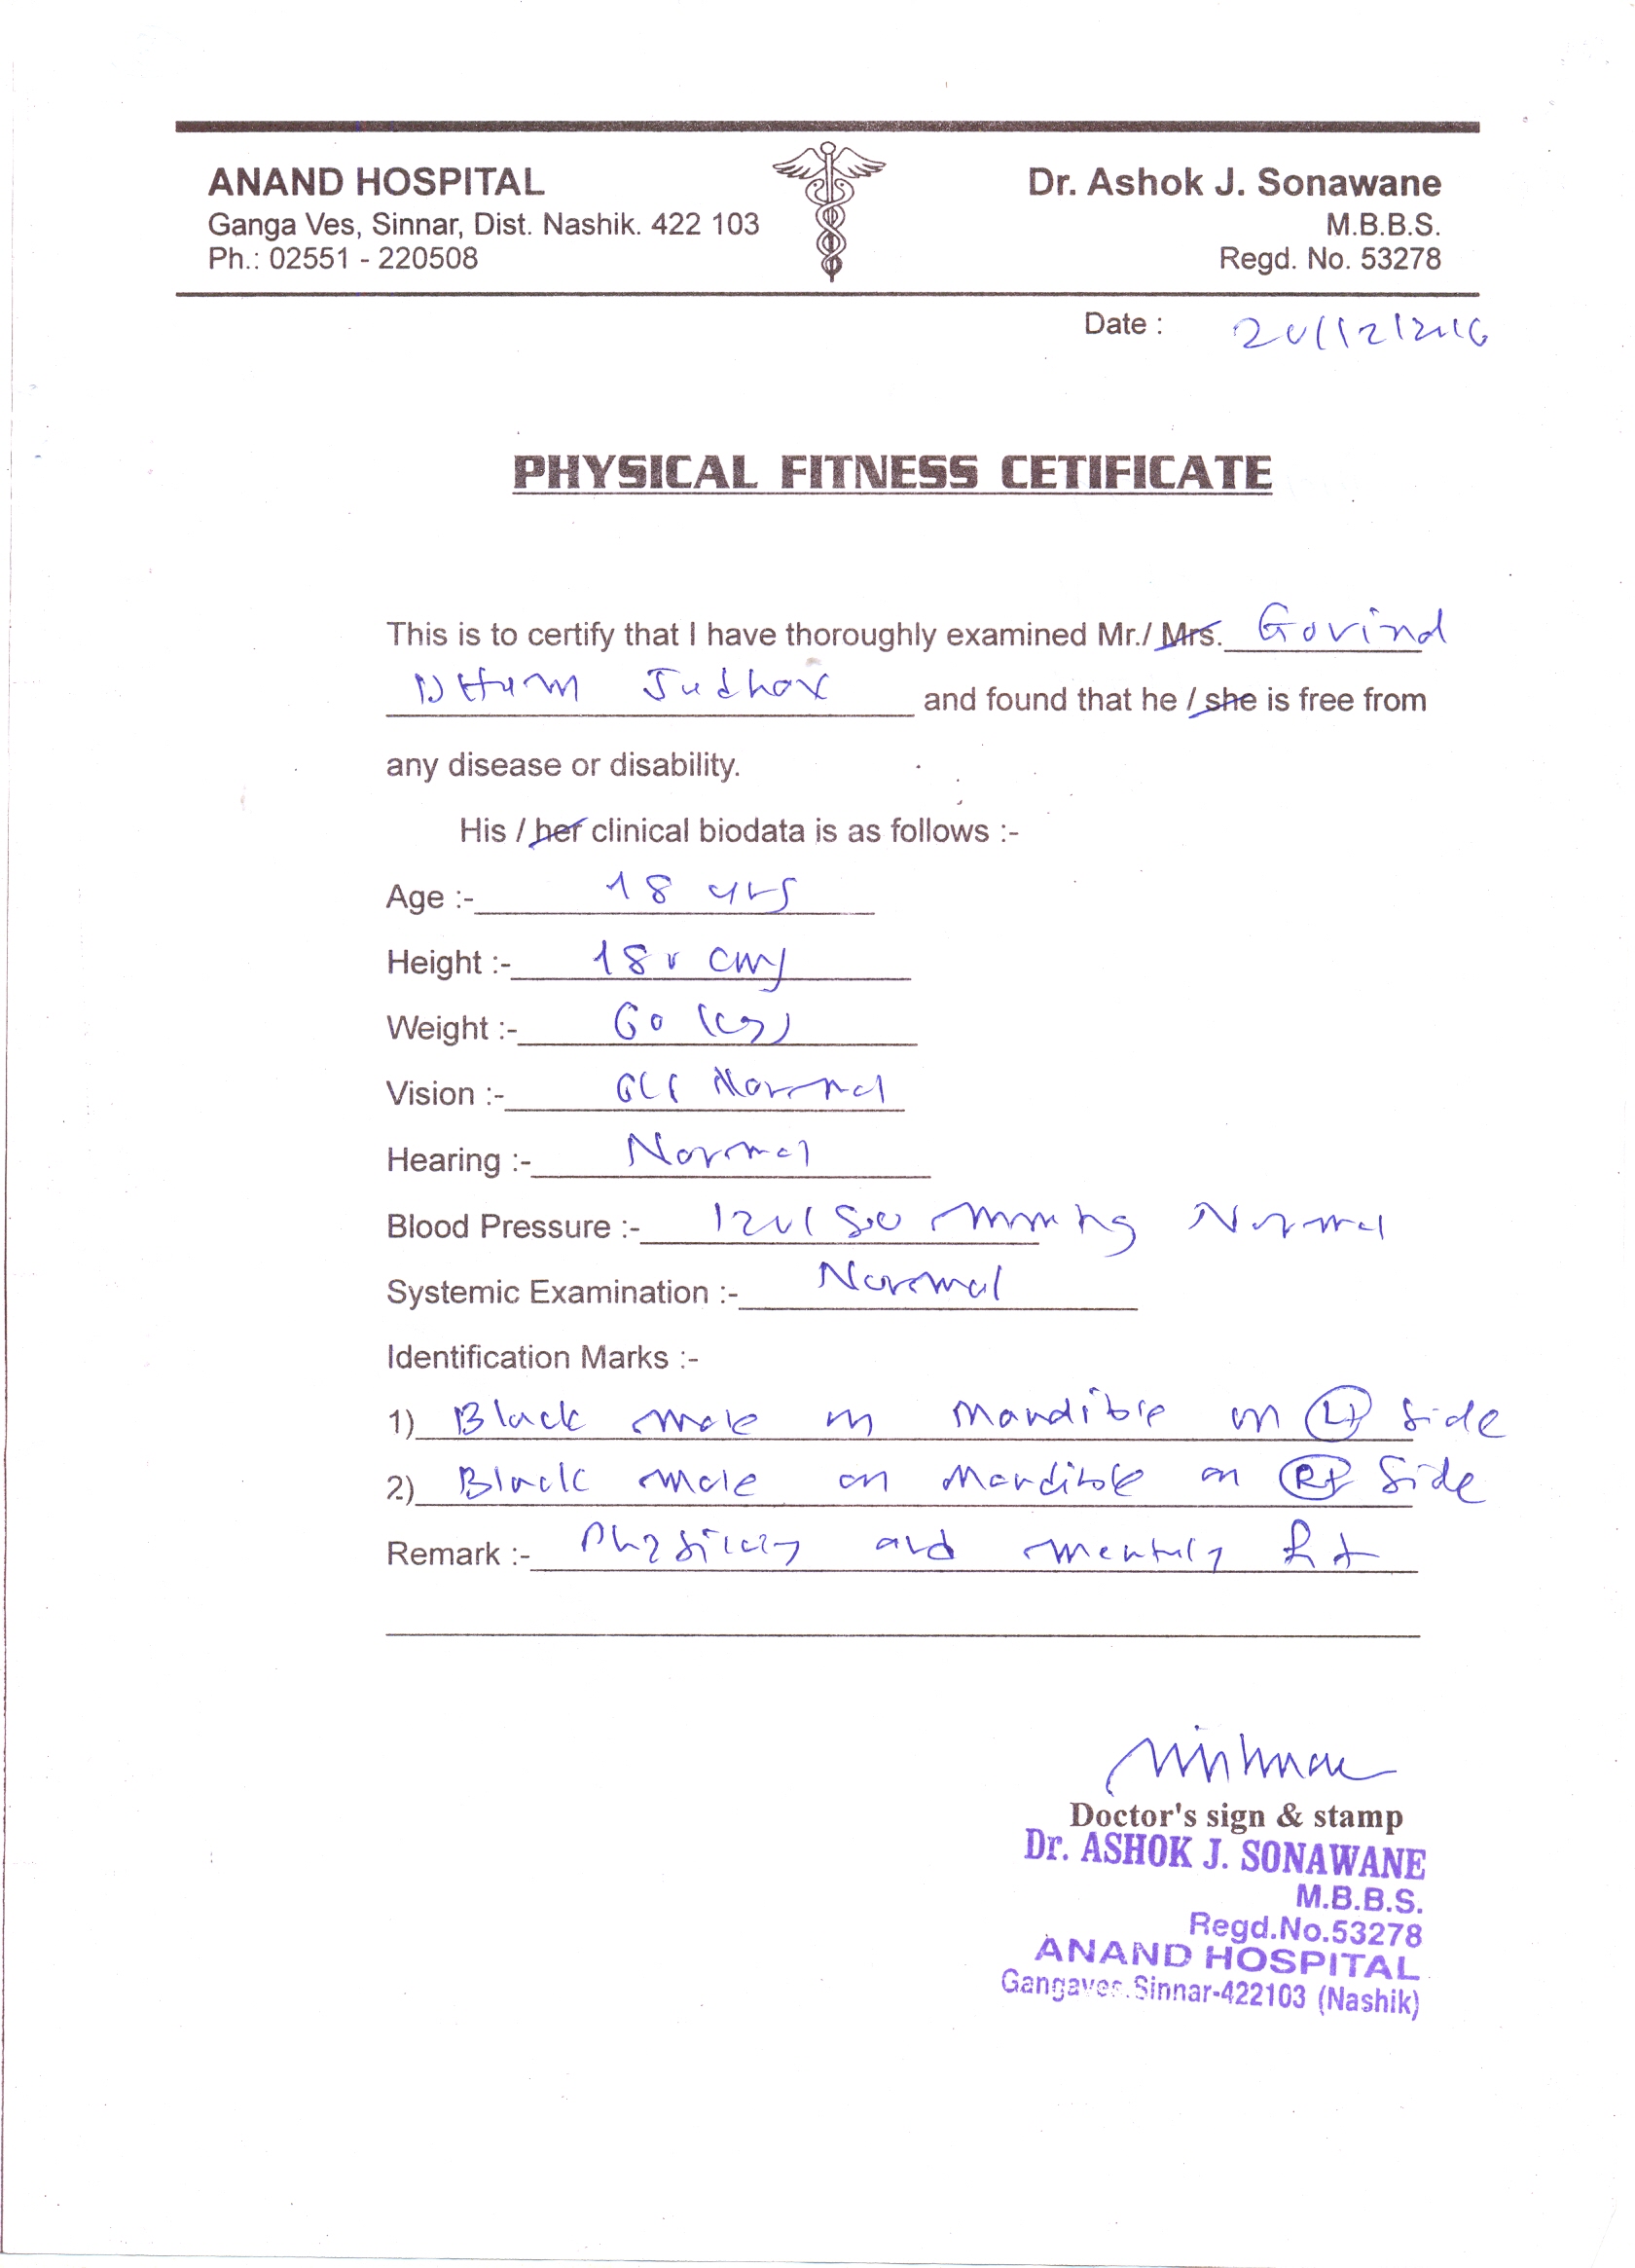 ANAND HOSPITAL
Ganga Ves, Sinnar, Dist. Nashik. 422 103
Ph.: 02551 - 220508
Dr. Ashok J. Sonawane
M.B.B.S.
Regd. No. 53278
Date : 20/12/2016
PHYSICAL FITNESS CETIFICATE
This is to certify that I have thoroughly examined Mr./ Mrs. Govind
and found that he / she is free from
any disease or disability.
His / her clinical biodata is as follows :-
Age :- 18 yrs
Height :- 180 cms
Weight :- 60 kgs
Vision :- 6/6 Normal
Hearing :- Normal
Blood Pressure :- 120/80 mm hg Normal
Systemic Examination :- Normal
Identification Marks :-
1) Black mole on mandible on Lt side
2) Black mole on mandible on Rt side
Remark :- Physically and mentally fit
Doctor's sign & stamp
Dr. ASHOK J. SONAWANE
M.B.B.S.
Regd.No.53278
ANAND HOSPITAL
Gangaves.Sinnar-422103 (Nashik)